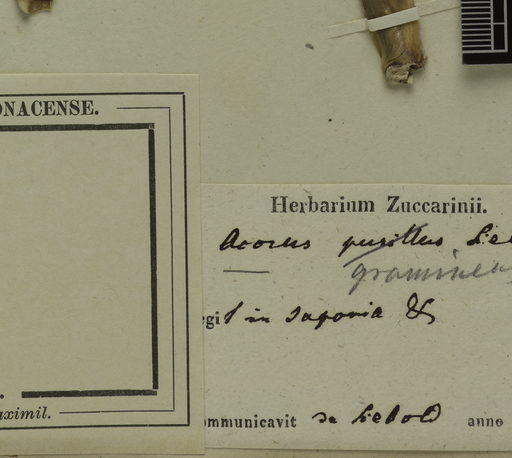 ONACENSE.
Herbarium Zuccarinii.
Acorus pusillus Sie
gramineus
egit in Japonia &
ommunicavit de Siebold anno
aximil.